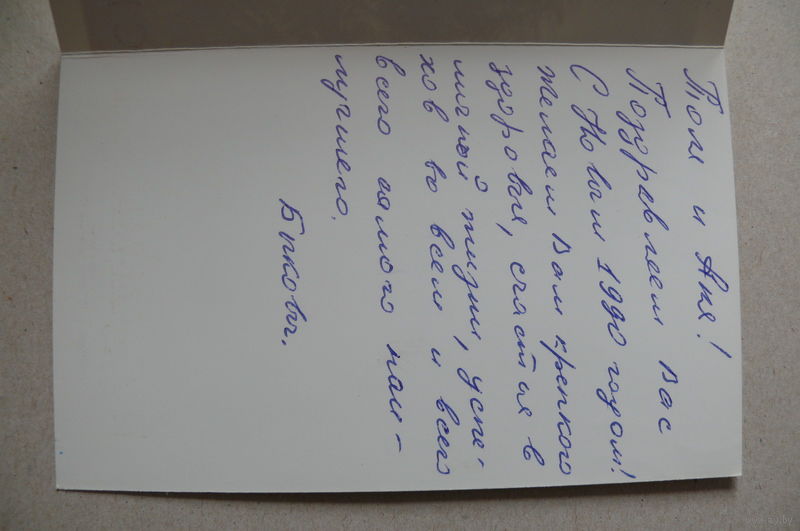 Том и Аня!
Поздравляем Вас
С Новым 1990 годом!
Желаем Вам крепкого
здоровья, счастья в
личной жизни, успе-
хов во всем и всего
всего самого наи-
лучшего.
Быковы.